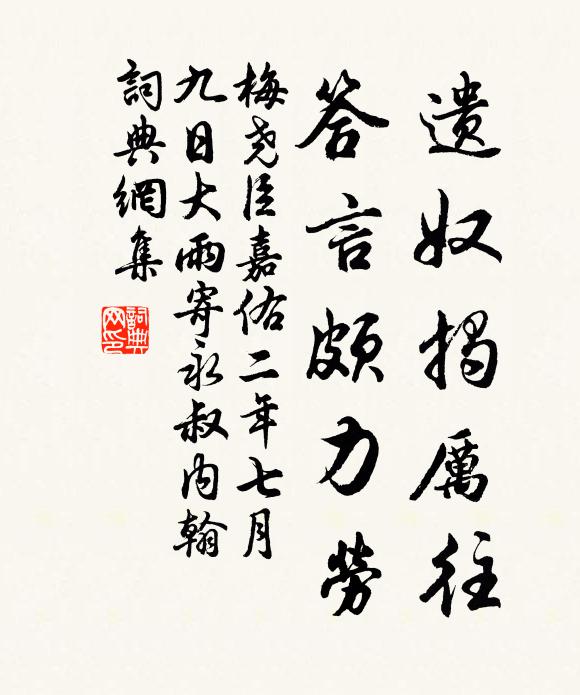 遺奴揭厲往
答言頗力勞
梅堯臣嘉佑二年七月
九日大雨寄永叔内翰
詞典網集
詞典
网印